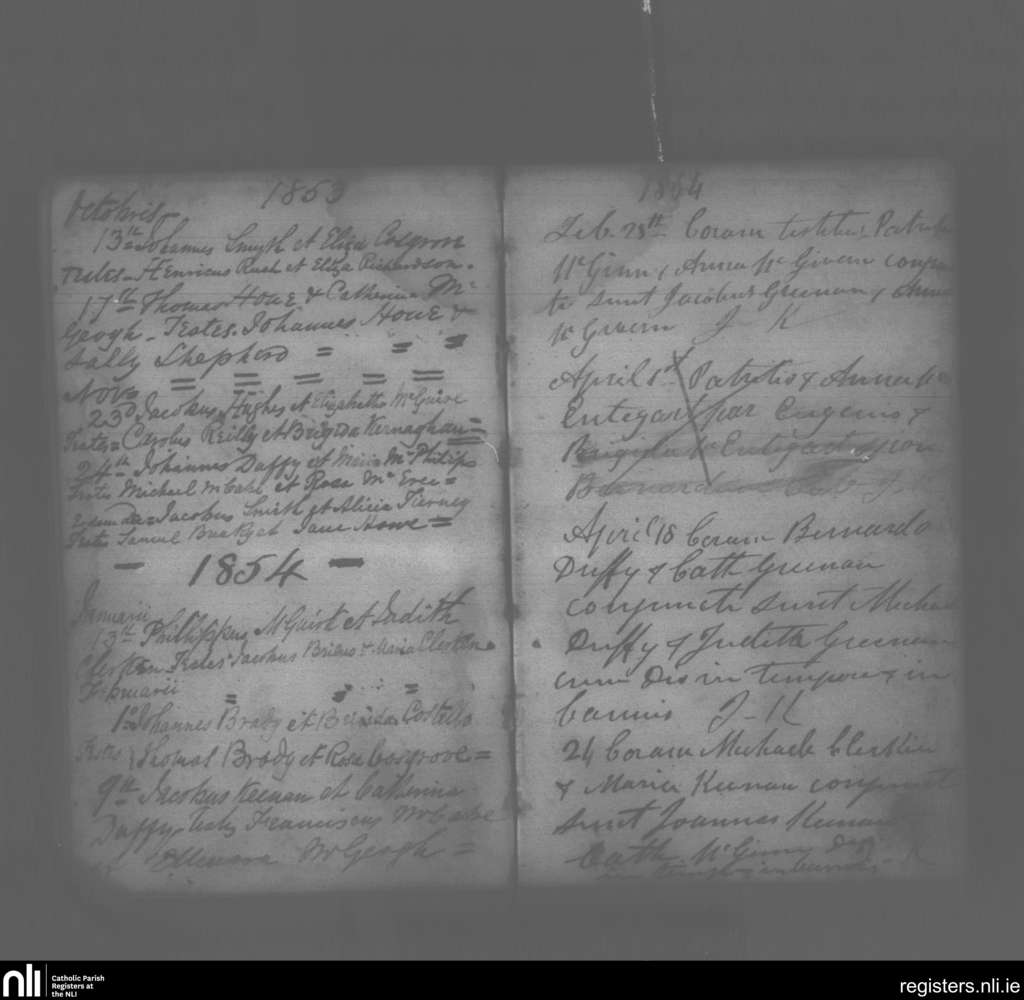 1853
Octobris
13th Johannes Smyth et Eliza Cosgrove
Testes - Henricus Rush et Eliza Richardson.
17th Thomas Howe & Catherina Mc
Geogh - Testes. Johannes Howe &
Sally Shepherd =
Nov
23d Jacobus Hughes et Elizabetha McGuire
Testes = Carolus Reilly et Brigida Kernaghan =
24th Johannes Duffy et Maria McPhilips
Testes Michael McCabe et Rose Mc
Eodem die = Jacobus Smith et Alicia Tierney
Testes Samuel et Jane Howe =
1854
Januarii
13th Philippus McGuirk et Judith
Clerkin Testes Jacobus Brienus & Maria Clerkin
Februarii
1o Johannes Brady et Brigida Costello
Testes Thomas Brady et Rose Cosgrove =
9th Jacobus Keenan et Catherina
Duffy, testes Franciscus McCabe
Ellenora McGeogh =
1854
Feb. 28th Coram testibus Patritio
McGinn & Anna McGivern conjunc
ti sunt Jacobus Greenan & Anna
McGivern J - K
April 1st Patritio & Anna Mc
Entegart par Eugenio &
Brigida McEntegart spon
Bernardus
April 18 Coram Bernardo
Duffy & Cath Greenan
conjuncti sunt Michael
Duffy & Judith Greenan
cum Dis in tempore & in
bannis J - K
24 Coram Michaele Clerkin
& Maria Keenan conjuncti
sunt Joannes Keenan
Cath McGinny
Catholic Parish
Registers at
the NLI
nli
registers.nli.ie